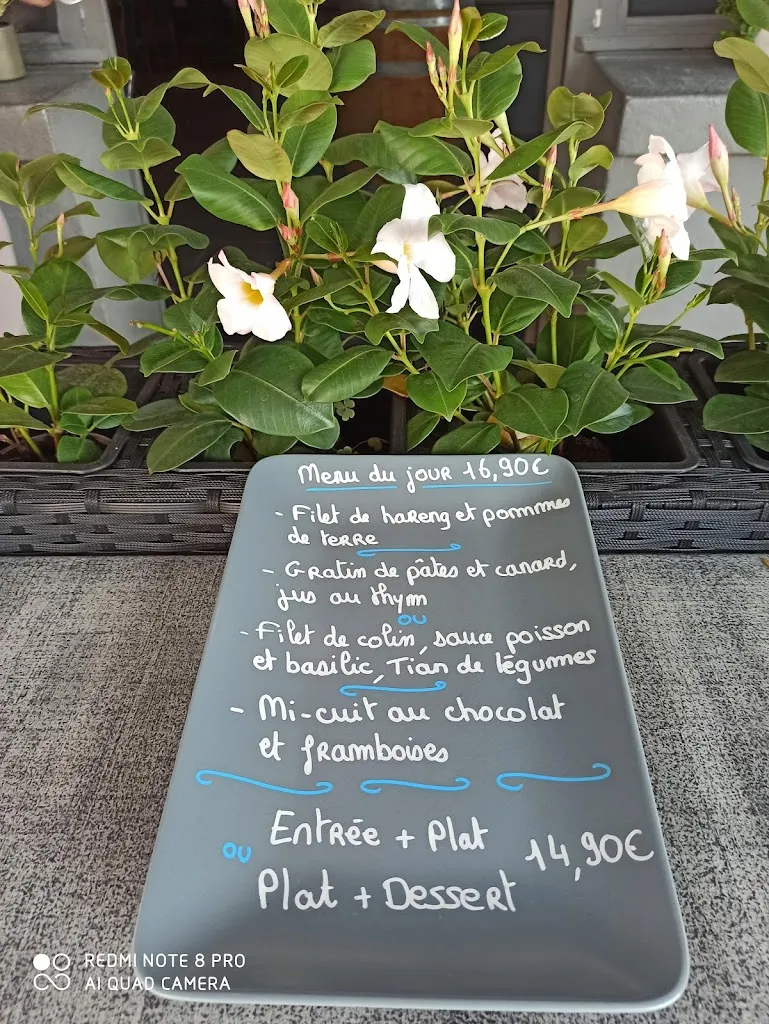 Menu du jour 16,90€
- Filet de hareng et pommes
de terre
- Gratin de pâtes et canard,
jus au thym
ou
- Filet de colin, sauce poisson
et basilic, Tian de légumes
- Mi-cuit au chocolat
et framboises
Entrée + Plat
ou 14,90€
Plat + Dessert
REDMI NOTE 8 PRO
AI QUAD CAMERA